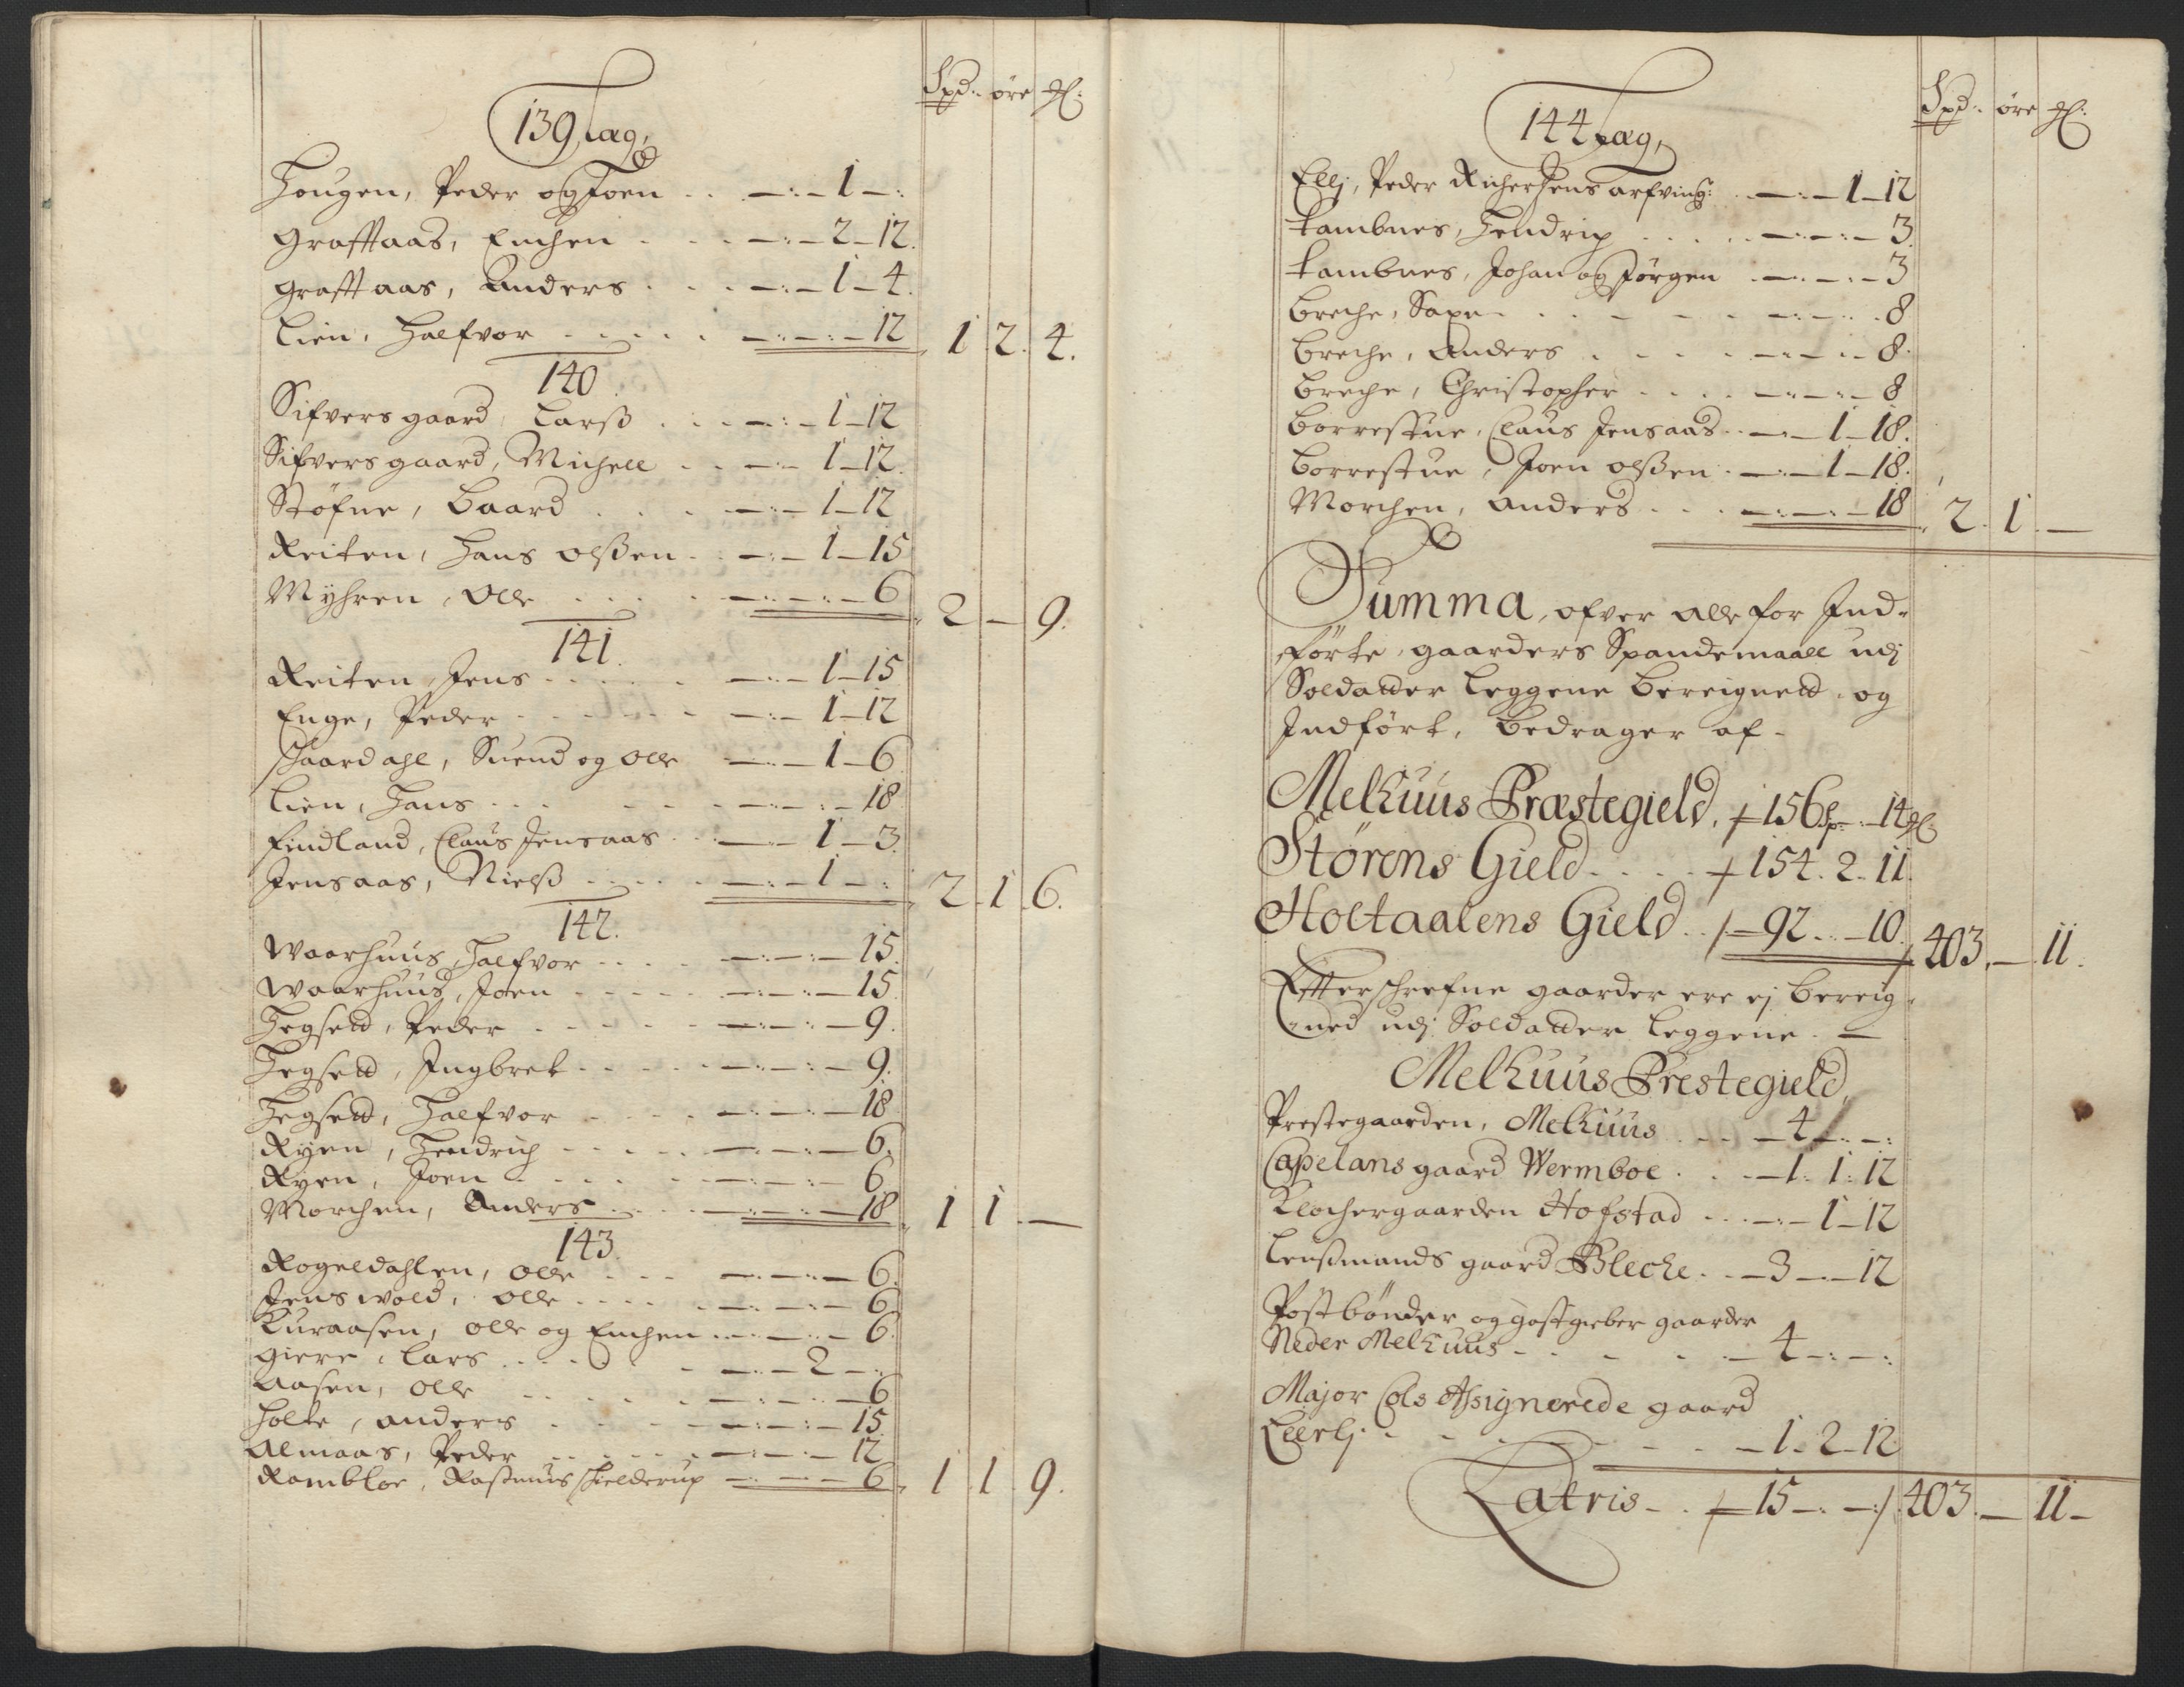 Spd: øre
139 læg,
Hougen, Peder og Joen . . — : — 1 — :
Graftaas, Enchen . . . — : — 2 — 12.
Graftaas, Anders . . . — : — 1 — 4.
Lien, Halfvor . . . . — : — : — 12 1 2. 4.
140
Sifversgaard, Larss . . . — : — 1 — 12
Sifversgaard, Michell . . — : — 1 — 12.
Støfne, Baard . . . — : — 1 — 12
Reiten, Hans olssen . . — : — 1 — 15
Myhren, Olle . . . . — : — : — 6 2 — 9.
141.
Reiten, Jens . . . . . — : — 1 — 15
Enge, Peder . . . . . — : — 1 — 12
schaardahl, Suend og Olle — : — 1 — 6
Lien, Hans . . . . . — : — : — 18
Findland, Claus Jensaas . . — : — 1 — 3.
Jensaas, Nielss . . . . . — : — 1 — : 2 1 6.
142.
Waarhuus, Halfvor . . . . — : — : — 15.
Waarhuus, Joen . . . . . — : — : — 15.
Hegsett, Peder . . . . . — : — : — 9.
Hegsett, Ingbret . . . . . — : — : — 9.
Hegsett, Halfvor . . . . — : — : — 18
Ryen, Hendrich . . . . . — : — : — 6.
Ryen, Joen . . . . . . — : — : — 6
Morchen, Anders . . . . — : — : — 18 1 1. —
143.
Rogeldahlen, Olle . . . — : — : — 6.
Jenswold, Olle . . . . . — : — : — 6
Kuraasen, Olle og Enchen . . — : — : — 6.
Giere, Lars . . . . . — : — 2 — :
Aasen, Olle . . . . . — : — : — 6
Holte, Anders . . . . . — : — : — 15.
Almaas, Peder . . . . . — : — : — 12
Rambloe, Rasmus schielderup — : — : — 6 1 1 9.
Spd: øre
144 læg,
Ellj, Peder Richertsens arfving: . — : — 1 — 12
Tambnes, Hendrich . . . . — : — : — 3.
Tambnes, Johan og Jørgen . — : — : — 3
Breche, Saxe . . . . . — : — : . 8
Breche, Anders . . . . . — : — : — 8.
Breche, Christopher . . . . — : — : — 8
Borrestue, Claus Jensaas . . — : — 1 — 18.
Borrestue, Joen olssen . — : — 1 — 18.
Morchen, Anders . . . — : — : — 18 2. 1. —
Summa, ofver alle for Ind-
førte gaarders Spandemaall udj
Soldatter leggene bereignett og
Indført, bedrager af -
Melhuus Præstegield. 156 sp — : 14
Størens Gield . . . . 154. 2. 11.
Holtaalens Gield . . 92 . . — 10. 403. — 11.
Efterschrefne gaarder ere ej bereig-
ned udj Soldatter leggene. —
Melhuus Prestegield,
Prestegaarden, Melhuus . . . — 4 — : — :
Capelans gaard Wermboe . . . — 1. 1. 12
Klochergaarden Hofstad . . . — : — 1 — 12
Lenssmands gaard Bleche . . — 3 — : — 12
Postbønder og gastgieber gaarder
Neder Melhuus . . . . . — 4 — : — :
Major Cols Assignerede gaard
Ellerlj . . . . . . . — 1. 2 — 12
Latris . . 15 — : — : 403. — 11 —